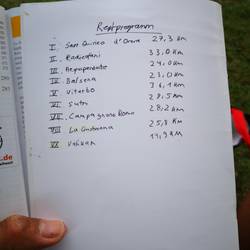 Restprogramm
I San Quirico d'Orcia 27,3 Km
II Radicofani 33,0 Km
III Acquapendente 24,0 Km
IV Bolsena 23,0 Km
V Viterbo 36,1 Km
VI Sutri 28,5 Km
VII Campagnano Roma 28,2 Km
VIII La Giustiniana 25,8 Km
IX Vatikan 14,9 KM
.de